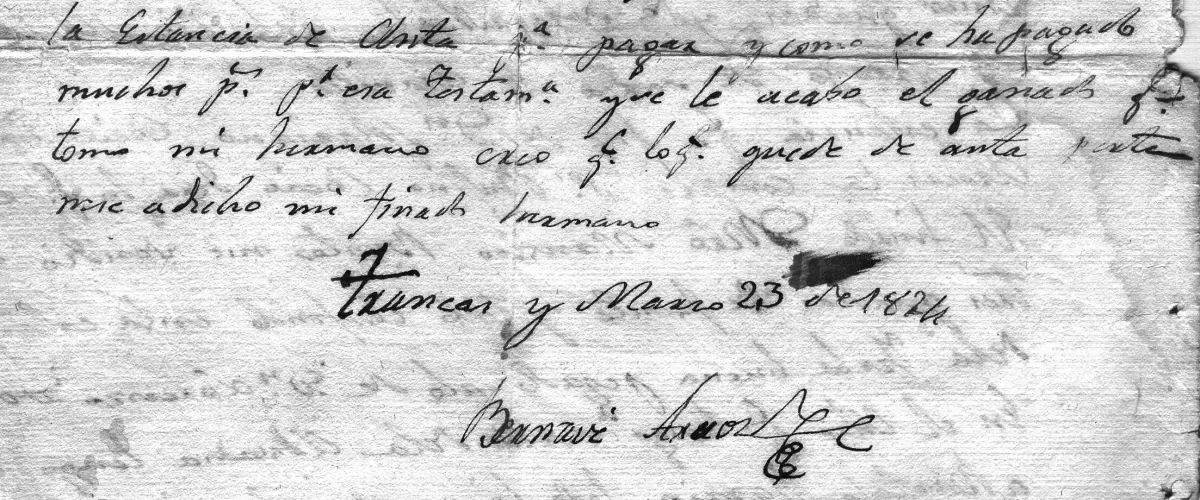 la Estancia de Anta pa. pagar y como se ha pagado
muchos ps. pr. esa Testamа. y qe le acabo el ganado q.e
tomo mi hermano creo q.e lo q.e quede de anta perte
nese a dicho mi finado hermano
Trancas y Marso 23 de 1824
Bernavé Araoz